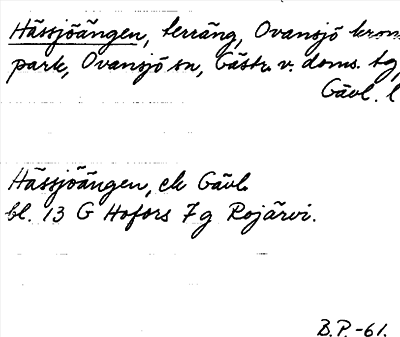 Hässjöängen, terräng, Ovansjö kron
park, Ovansjö sn, Gästr. v. doms. tg,
Gävl. l
Hässjöängen, ek Gävl.
bl. 13 G Hofors 7g Rojärvi.
B.P.-61.